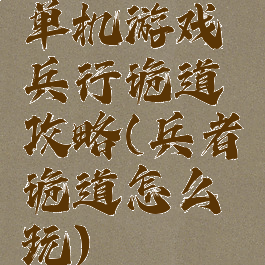 单机游戏
兵行诡道
攻略(兵者
诡道怎么
玩)